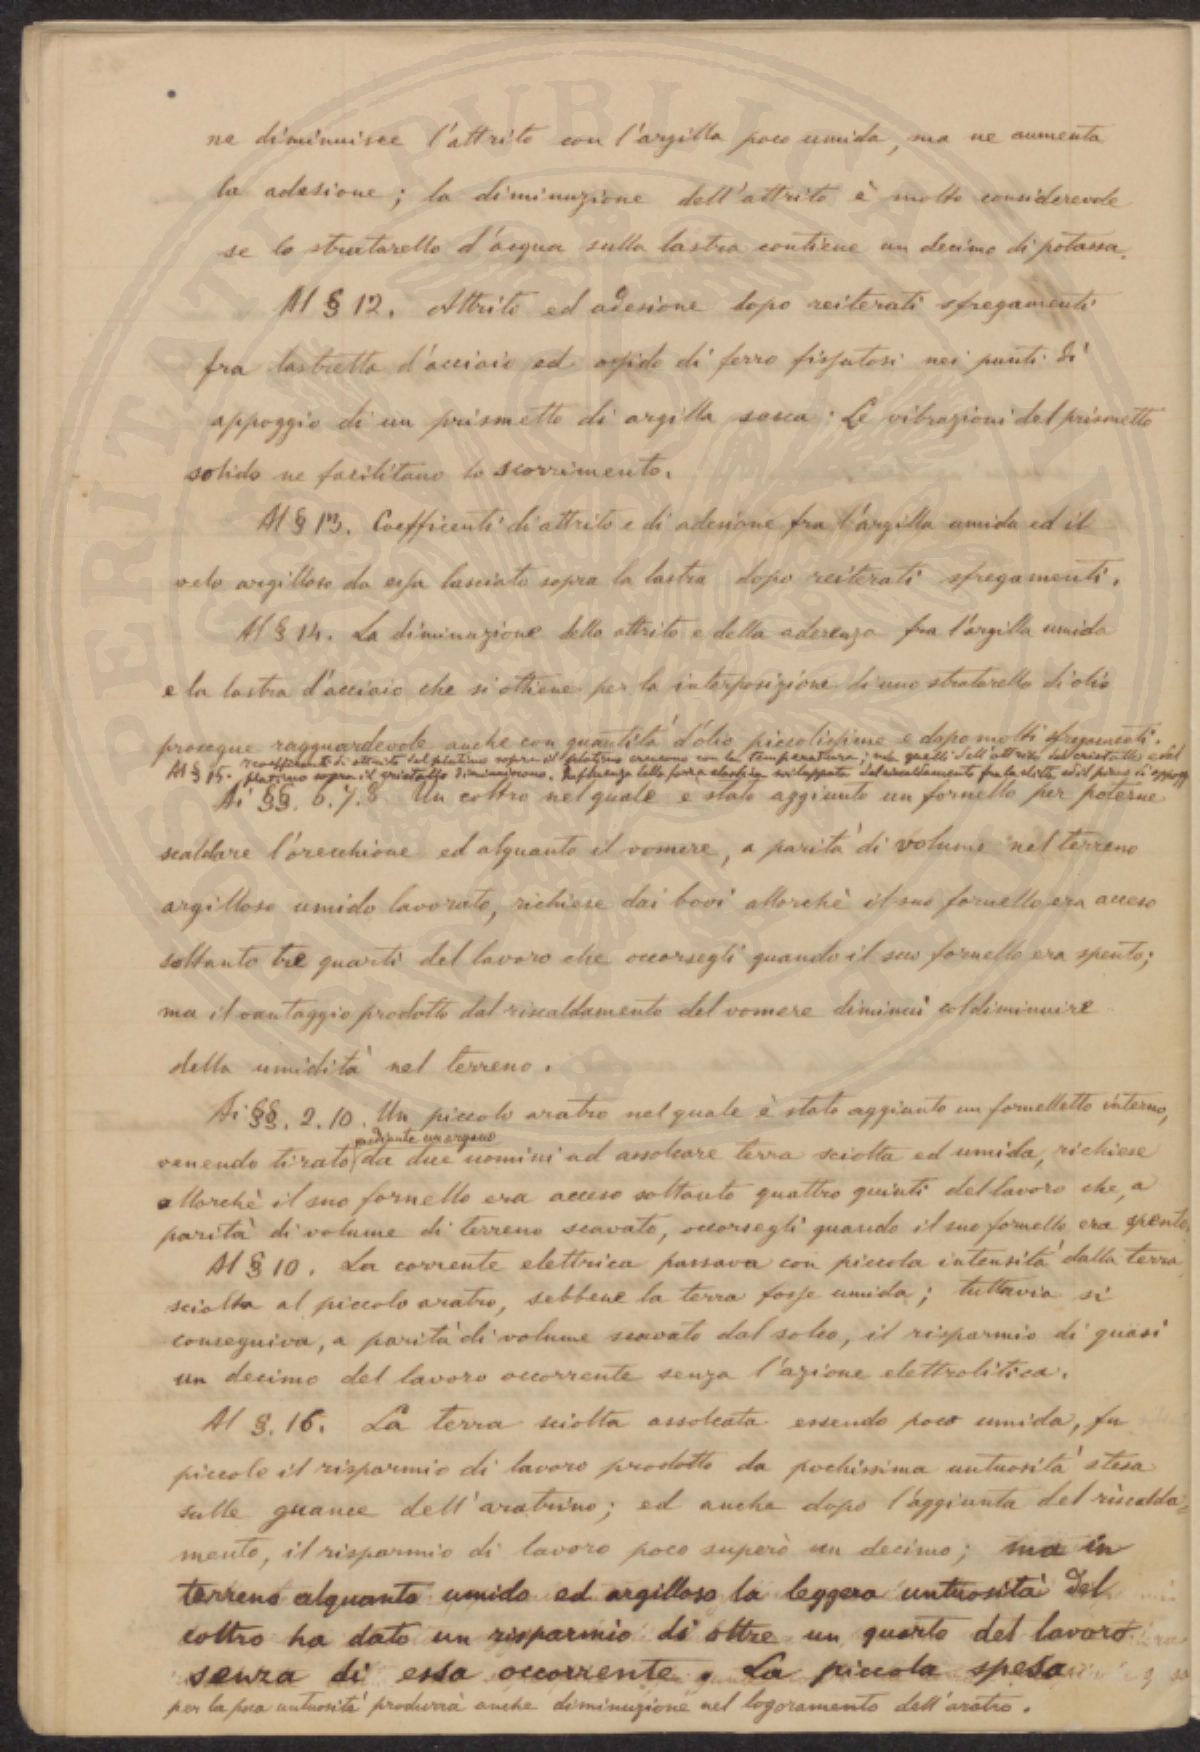 ne diminuisce l'attrito con l'argilla poco umida, ma ne aumenta
la adesione; la diminuzione dell'attrito è molto considerevole
se lo straterello d'acqua sulla lastra contiene un decimo di potassa.
Al § 12. Attrito ed adesione dopo reiterati sfregamenti
fra lastretta d'acciaio ed ossido di ferro fissatosi nei punti di
appoggio di un prismetto di argilla secca. Le vibrazioni del prismetto
solido ne facilitano lo scorrimento.
Al § 13. Coefficenti di attrito e di adesione fra l'argilla umida ed il
velo argilloso da essa lasciato sopra la lastra dopo reiterati sfregamenti.
Al § 14. La diminuzione dello attrito e della aderenza fra l'argilla umida
e la lastra d'acciaio che si ottiene per la interposizione di uno straterello di olio
prosegue ragguardevole anche con quantità d'olio piccolissime e dopo molti sfregamenti.
Al § 15. I coefficienti di attrito del platino sopra il platino crescono con la temperatura; ma quelli dell'attrito del cristallo e del
platino sopra il cristallo diminuiscono. Influenza della forza elastica sviluppata dal riscaldamento fra la slitta ed il piano di appoggio
Ai §§. 6.7.8. Un coltro nel quale è stato aggiunto un fornello per poterne
scaldare l'orecchione ed alquanto il vomere, a parità di volume nel terreno
argilloso umido lavorato, richiese dai bovi allorchè il suo fornello era acceso
soltanto tre quarti del lavoro che occorsegli quando il suo fornello era spento;
ma il vantaggio prodotto dal riscaldamento del vomere diminuì col diminuire
della umidità nel terreno.
Ai §§. 2.10. Un piccolo aratro nel quale è stato aggiunto un fornelletto interno,
mediante un argano
venendo tirato da due uomini ad assolcare terra sciolta ed umida, richiese
allorchè il suo fornello era acceso soltanto quattro quinti del lavoro che, a
parità di volume di terreno scavato, occorsegli quando il suo fornello era spento.
Al § 10. La corrente elettrica passava con piccola intensità dalla terra
sciolta al piccolo aratro, sebbene la terra fosse umida; tuttavia si
conseguiva, a parità di volume scavato dal solco, il risparmio di quasi
un decimo del lavoro occorrente senza l'azione elettrolitica.
Al §. 16. La terra sciolta assolcata essendo poco umida, fu
piccolo il risparmio di lavoro prodotto da pochissima untuosità stesa
sulle guance dell'aratrino; ed anche dopo l'aggiunta del riscalda=
mento, il risparmio di lavoro poco superò un decimo; ma in
terreno alquanto umido ed argilloso la leggera untuosità del
coltro ha dato un risparmio di oltre un quarto del lavoro
senza di essa occorrente. La piccola spesa
per la poca untuosità produrrà anche diminuzione nel logoramento dell'aratro.